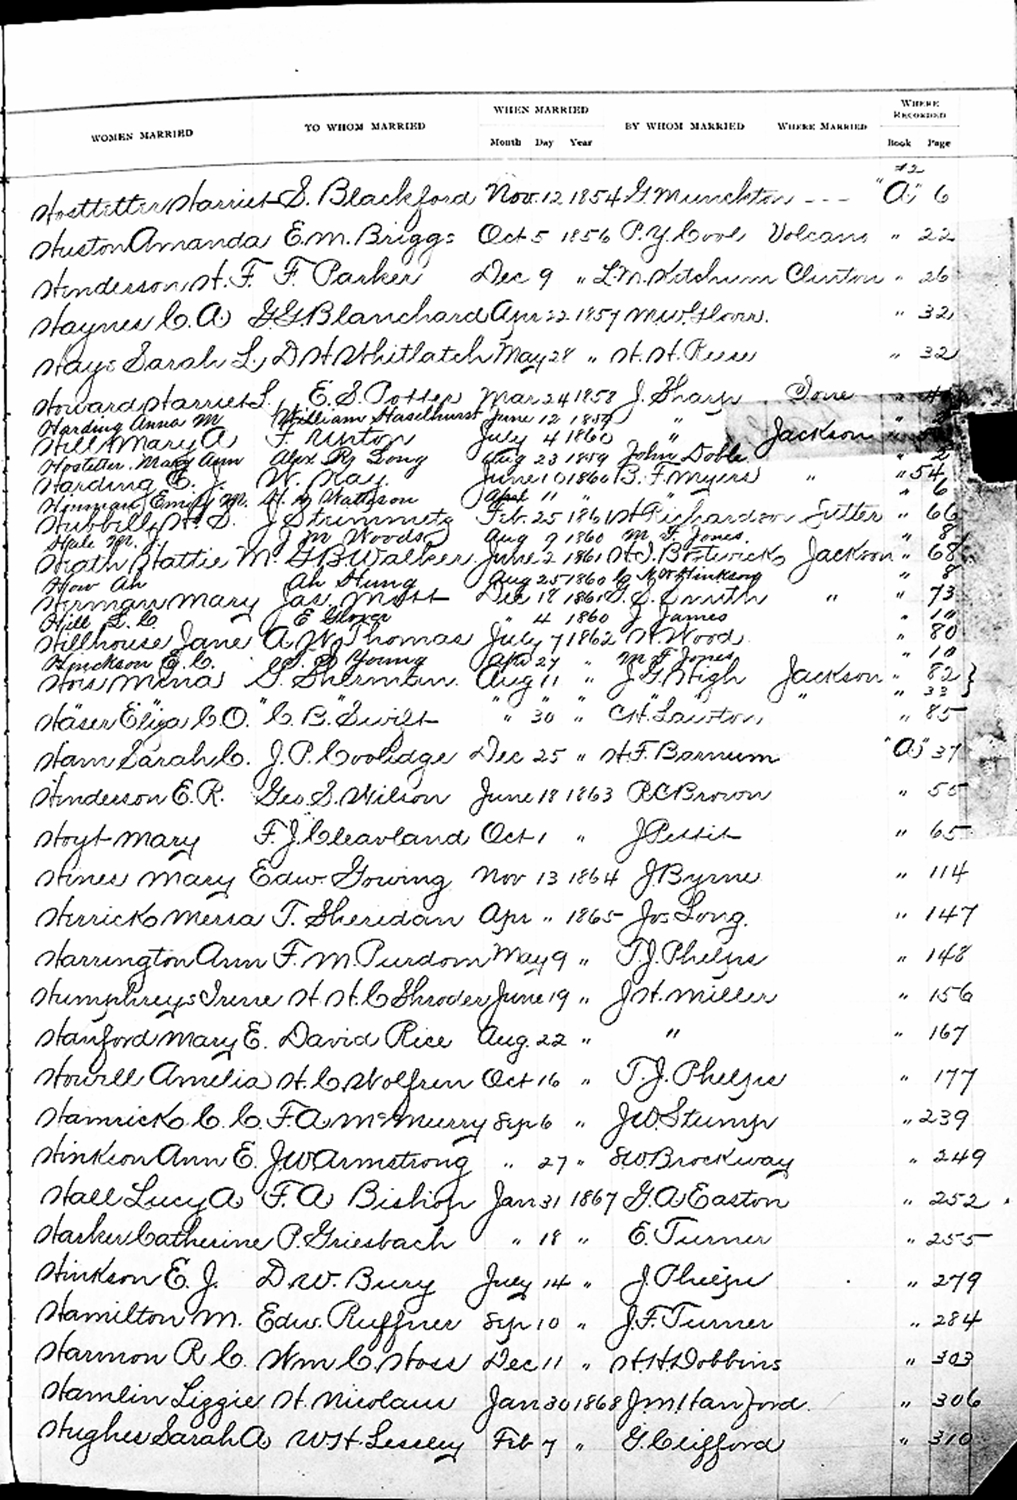 WHEN MARRIED WHERE RECORDED
WOMEN MARRIED TO WHOM MARRIED BY WHOM MARRIED WHERE MARRIED
Month Day Year Book Page
Hosttetter Harriet S. Blackford Nov. 12 1854 G. Munckton - - - "A," 6
Huston Amanda E. M. Briggs Oct 5 1856 P. Y. Cool Volcano " 22
Henderson H. F. F Parker Dec 9 " L. M. Ketchum Clinton " 26
Haynes C. A. G. G. Blanchard Apr 22 1857 M. W. Glover. " 32
Hays Sarah L. D H Whitlatch May 28 " H. H. Rhees " 32
Howard Harriet L. E. S. Potter Mar 24 1858 J. Sharp Ione "
Harding Anna M William Haselhurst June 12 1859 " "
Hill Mary A F. Upton July 4 1860 " Jackson "
Hostetter. Mary Ann Alex R. Long Aug 23 1859 John Doble " 2
Harding E. J. W. Kay June 10 1860 B. F. Myers " " 54
Hinman Emily M. H. M Matteson Apr 11 " " " 6
Hubbill, H. S. J Strimmetz Feb. 25 1861 H Richardson Sutter " 66
Hale M. J. J M Woods Aug 9 1860 M. F. Jones. " 8
Heath Hattie M. G B Walker June 2 1861 H. J. Bostwick Jackson " 68
How Ah Ah Hung Aug 25 1860 C. N. W. Hinkson " 8
Herman Mary Jas. Mott Dec 18 1861 S. E. Smith " " 73
Hill L. C E Glover " 4 1860 J James " 10
Hillhouse Jane A. W. Thomas July 7 1862 H. Wood " 80
Hinckson E. C. Young Apr 27 " M. F. Jones. " 10
Hois Mena G. Sherman. Aug 11 " J. G. High Jackson " 82 }
" " " " " " " " 33 }
Häser Eliza C. O. C. B. Swift " 30 " C. H. Lawton " 85
Ham Sarah C. J. P. Coolidge Dec 25 " H. F. Barnum "A." 37
Henderson E. R. Geo. S. Wilson June 18 1863 R C Brown " 55
Hoyt Mary F. J. Cleavland Oct 1 " J Pettit " 65
Hines Mary Edw. Gowing Nov 13 1864 J. Byrne " 114
Herrick Mersa T. Sheridan Apr " 1865 Jos Long. " 147
Harrington Ann F. M. Purdom May 9 " T. J. Phelps " 148
Humphreys Irene H. H. C Shroder June 19 " J H. Miller " 156
Hanford Mary E. David Rice Aug. 22 " " " 167
Howell Amelia H. C. Wolfren Oct 16 " T. J. Phelps " 177
Hamrick C. C. F. A McMurry Sep 6 " J. W. Stump " 239
Hinkson Ann E. J W Armstrong " 27 " S W. Brockway " 249
Hall Lucy A F. A Bishop Jan 31 1867 G. A Easton " 252
Harker Catherine P. Griesbach " 18 " E. Turner " 255
Hinkson E. J. D W. Bury July 14 " J. Phelps " 279
Hamilton M. Edw. Ruffner Sep 10 " J. F. Turner " 284
Harmon R C. Wm C. Hoss Dec 11 " H. H. Dobbins " 303
Hamlin Lizzie H. Nicolaus Jan 30 1868 J. M. Hanford. " 306
Hughes Sarah A W H Lessley Feb 7 " G. Clifford " 310